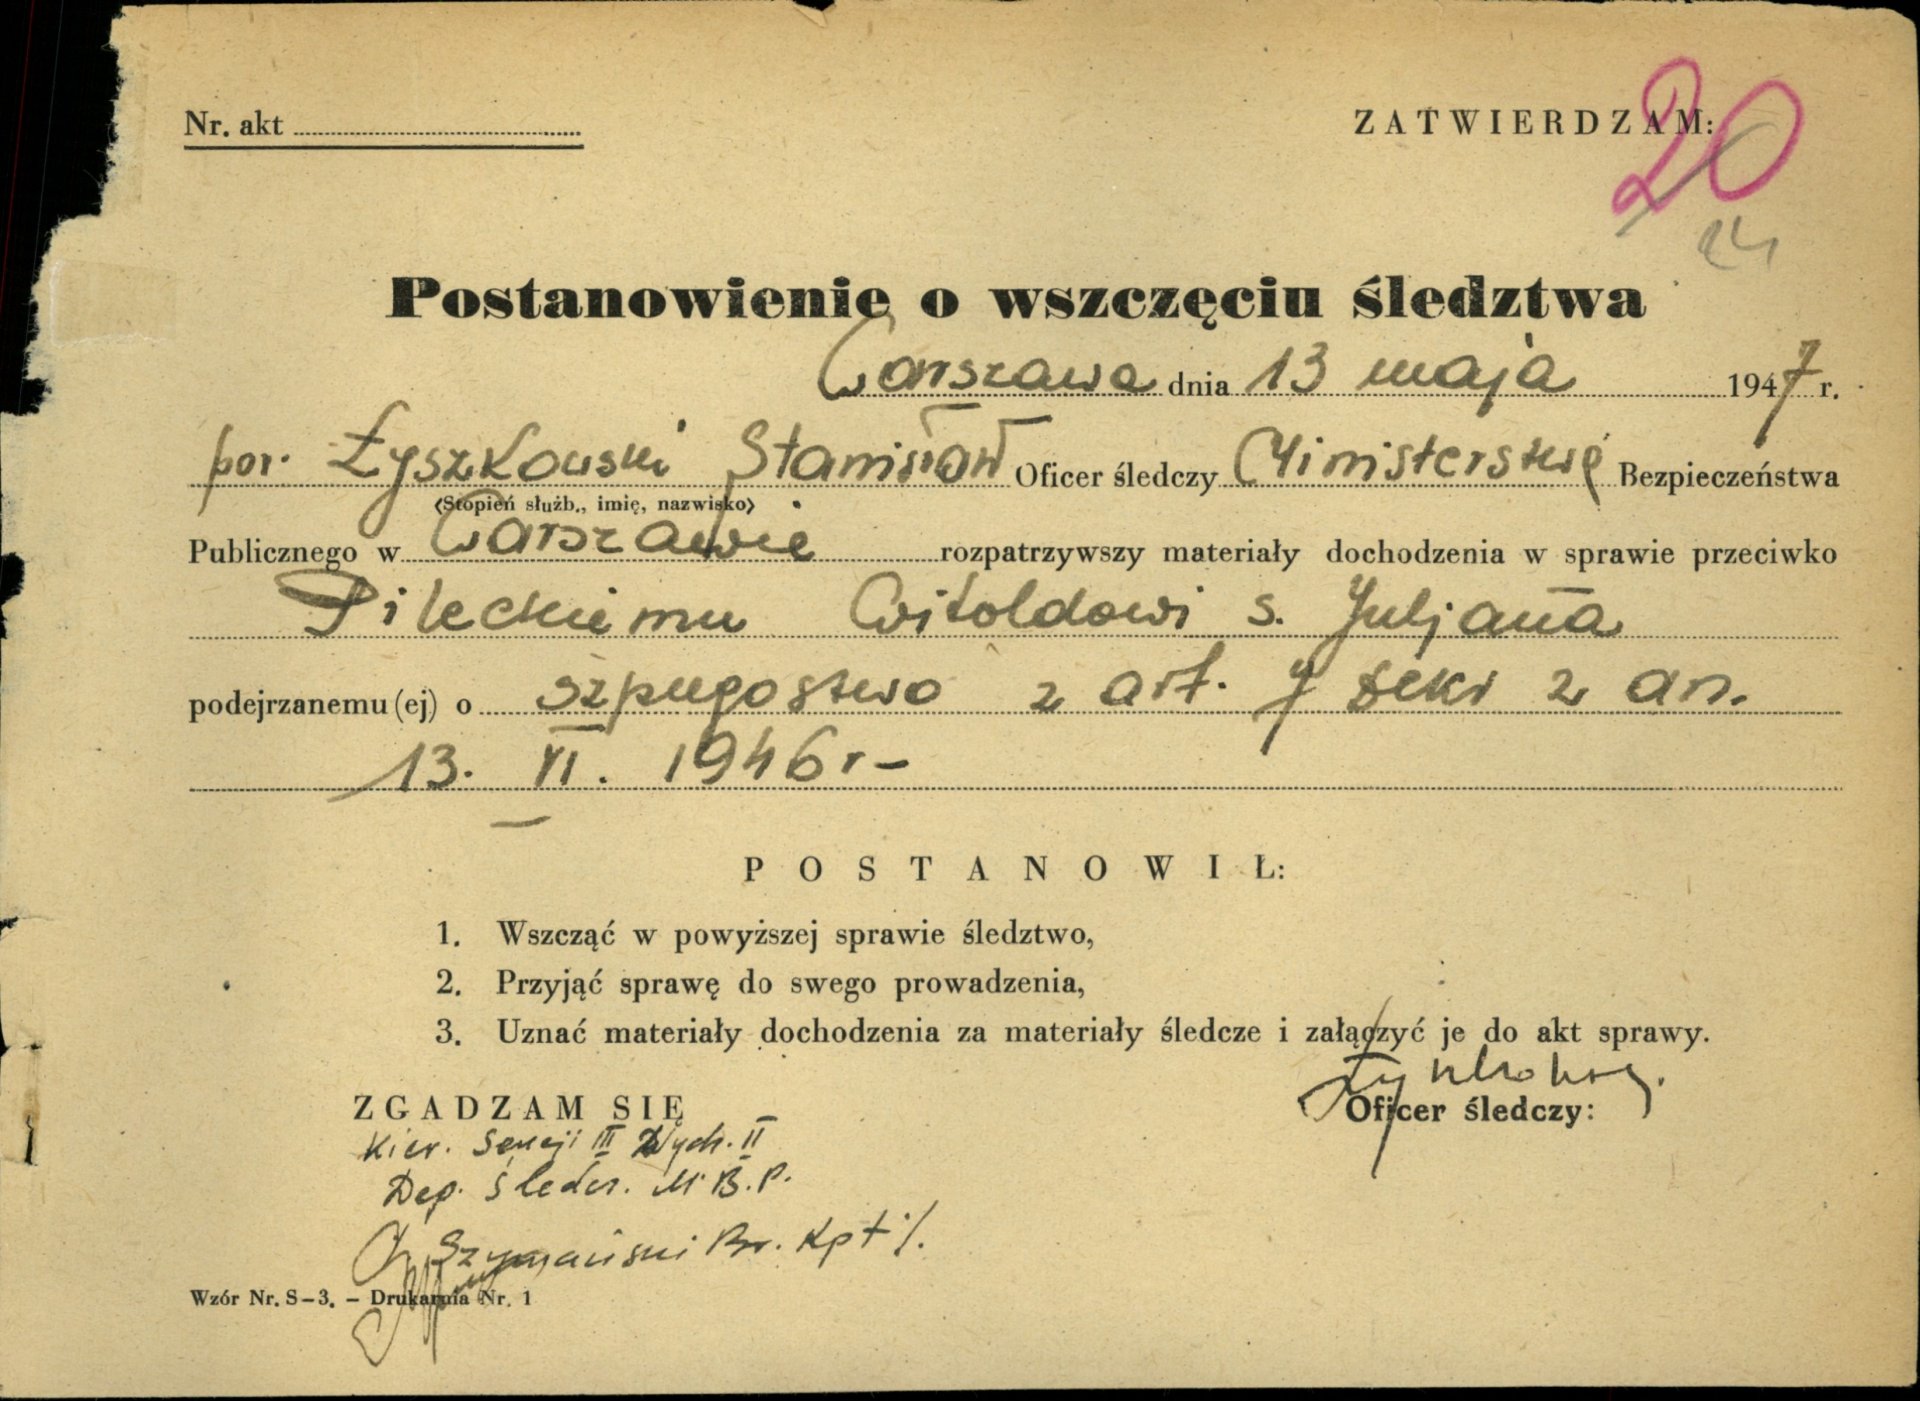 Nr. akt
ZATWIERDZAM:
20
24
Postanowienie o wszczęciu śledztwa
Warszawa dnia 13 maja 1947 r.
por. Łyszkowski Stanisław Oficer śledczy Ministerstwa Bezpieczeństwa
(Stopień służb., imię, nazwisko)
Publicznego w Warszawie rozpatrzywszy materiały dochodzenia w sprawie przeciwko
Pileckiemu Witoldowi s. Juljana
podejrzanemu (ej) o szpiegostwo z art. 7 dekr z dn.
13. VI. 1946 r-
POSTANOWIŁ:
1. Wszcząć w powyższej sprawie śledztwo,
2. Przyjąć sprawę do swego prowadzenia,
3. Uznać materiały dochodzenia za materiały śledcze i załączyć je do akt sprawy.
ZGADZAM SIĘ
Oficer śledczy:
Kier. Sekcji III Wydz. II
Dep. Śledcz. M.B.P.
Szymański Br. Kpt
Wzór Nr. S-3. - Drukarnia Nr. 1